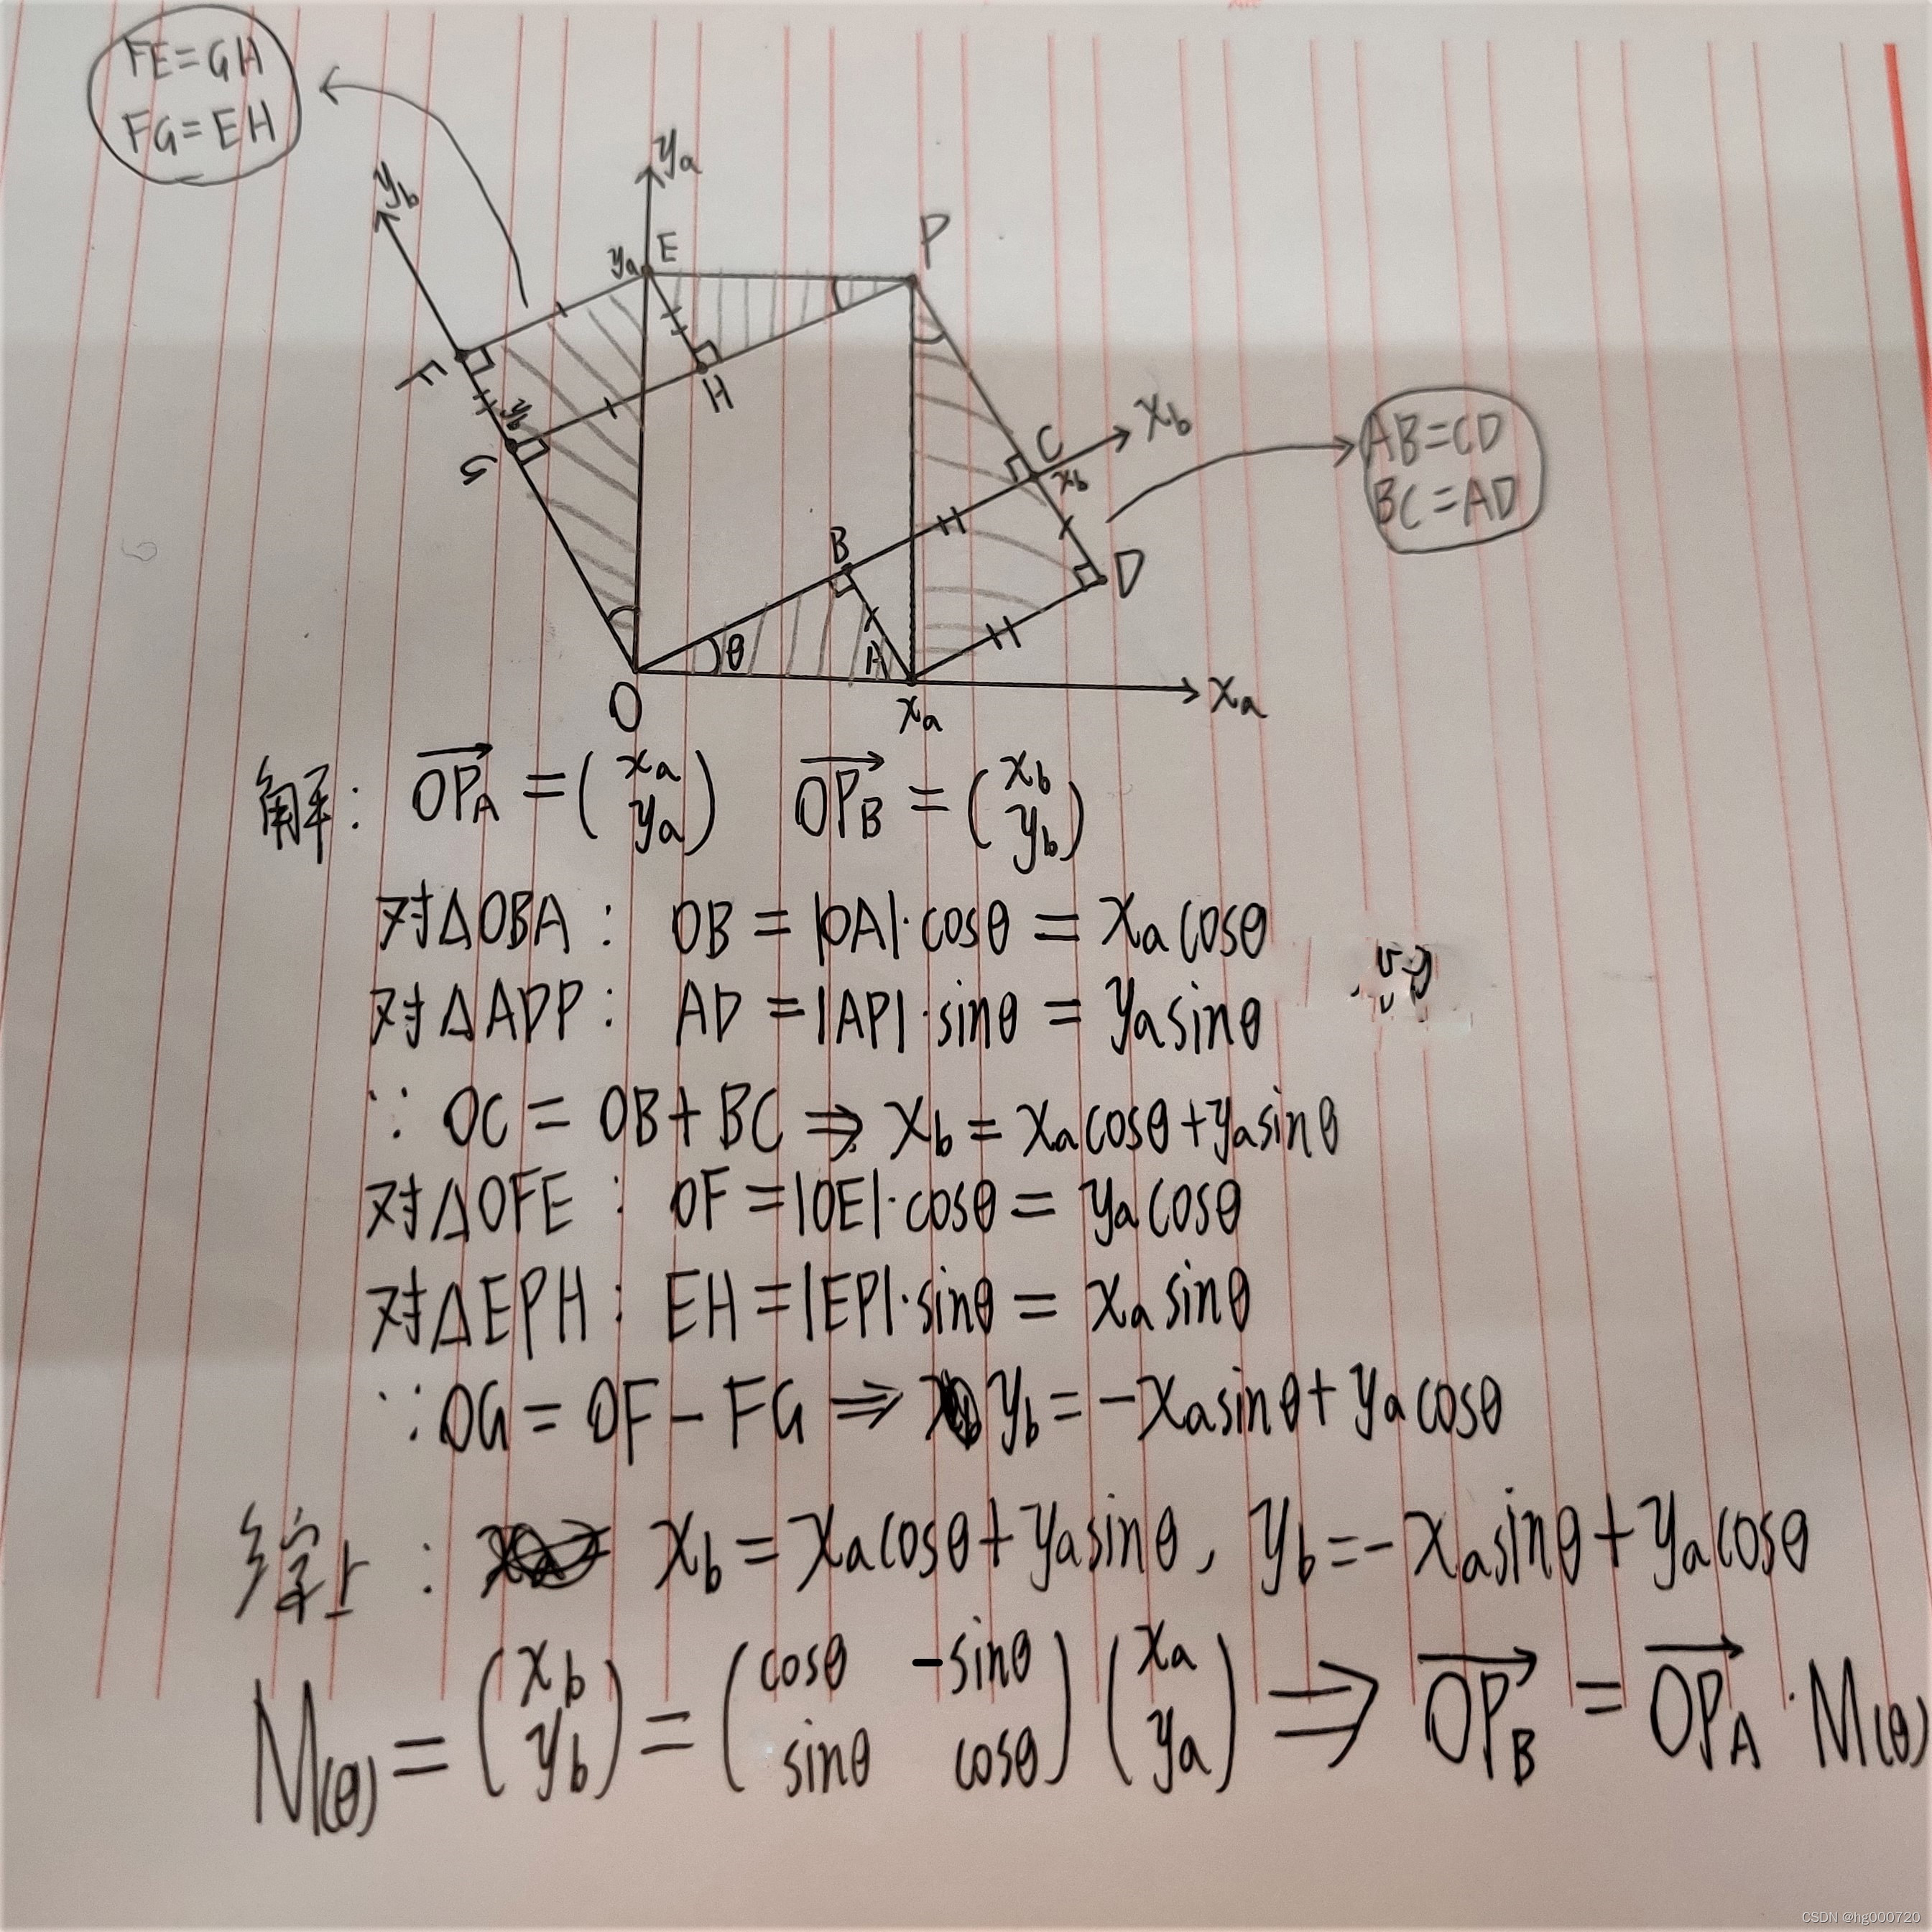 FE=GH
FG=EH
yₐ
y_b
yₐ E
P
F
H
y_b
G
C
X_b
x_b
AB=CD
BC=AD
B
D
θ
A
O
xₐ
Xₐ
解: OP_A = (xₐ yₐ) OP_B = (x_b y_b)
对△OBA: OB = |OA|·cosθ = xₐcosθ
对△ADP: AD = |AP|·sinθ = yₐsinθ
∵ OC = OB + BC ⇒ x_b = xₐcosθ + yₐsinθ
对△OFE: OF = |OE|·cosθ = yₐcosθ
对△EPH: EH = |EP|·sinθ = xₐsinθ
∵ OG = OF - FG ⇒ y_b = -xₐsinθ + yₐcosθ
综上: x_b = xₐcosθ + yₐsinθ, y_b = -xₐsinθ + yₐcosθ
M(θ) = (x_b y_b) = (cosθ -sinθ sinθ cosθ)(xₐ yₐ) ⇒ OP_B = OP_A · M(θ)
CSDN @hg000720